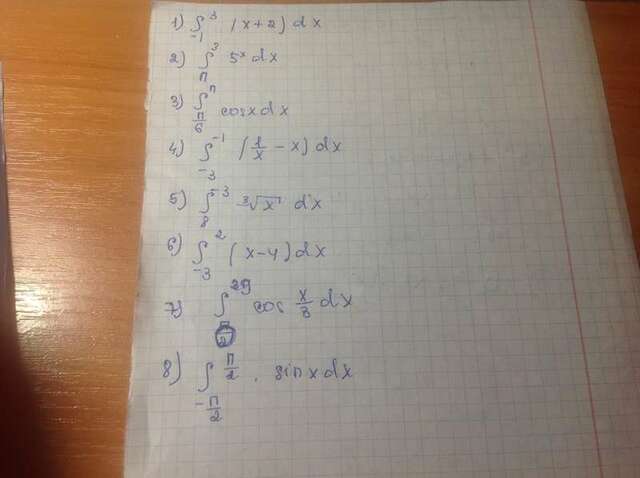 1) ∫₋₁³ (x+2) dx
2) ∫ₙ³ 5ˣ dx
3) ∫_{π/6}^{π} cosxdx
4) ∫₋₃⁻¹ (1/x - x) dx
5) ∫₈⁻³ ³√x dx
6) ∫₋₃² (x-4) dx
7) ∫ cos x/3 dx
8) ∫_{-π/2}^{π/2} . sinxdx